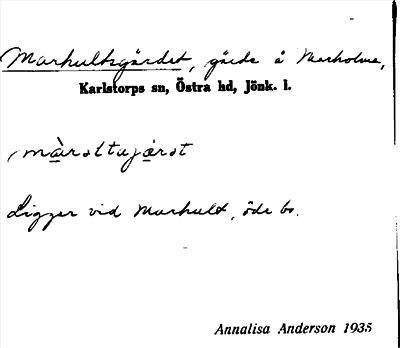 Markultsgärdet, gärde å Marholma,
Karlstorps sn, Östra hd, Jönk. l.
màrəltujærət
Ligger vid Markult, öde bs.
Annalisa Anderson 1935